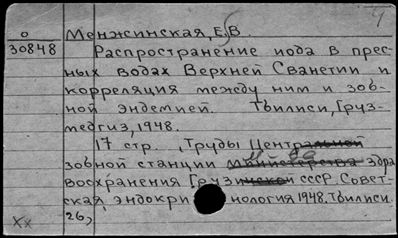 о
30848
Менжинская, Е.В.
Распространение иода в прес-
ных водах Верхней Сванетии и
корреляция между ним и зоб-
ной эндемией. Тбилиси, Груз-
медгиз, 1948.
17 стр. „Труды Центральной
зобной станции Министерства Здра
воохранения Грузинской СССР. Совет-
ская эндокри нология 1948. Тбилиси.
26,
XX